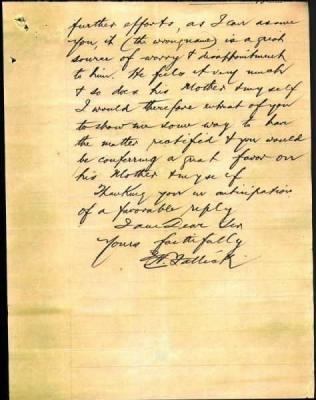 further efforts, as I can assure
you, it (the wrong name) is a great
source of worry & disappointment
to him. He feels it very much
& so does his Mother & myself
I would therefore entreat of you
to show me some way to have
the matter rectified & you would
be conferring a great favor on
his Mother & myself
Thanking you in anticipation
of a favorable reply
I am Dear Sir
Yours faithfully